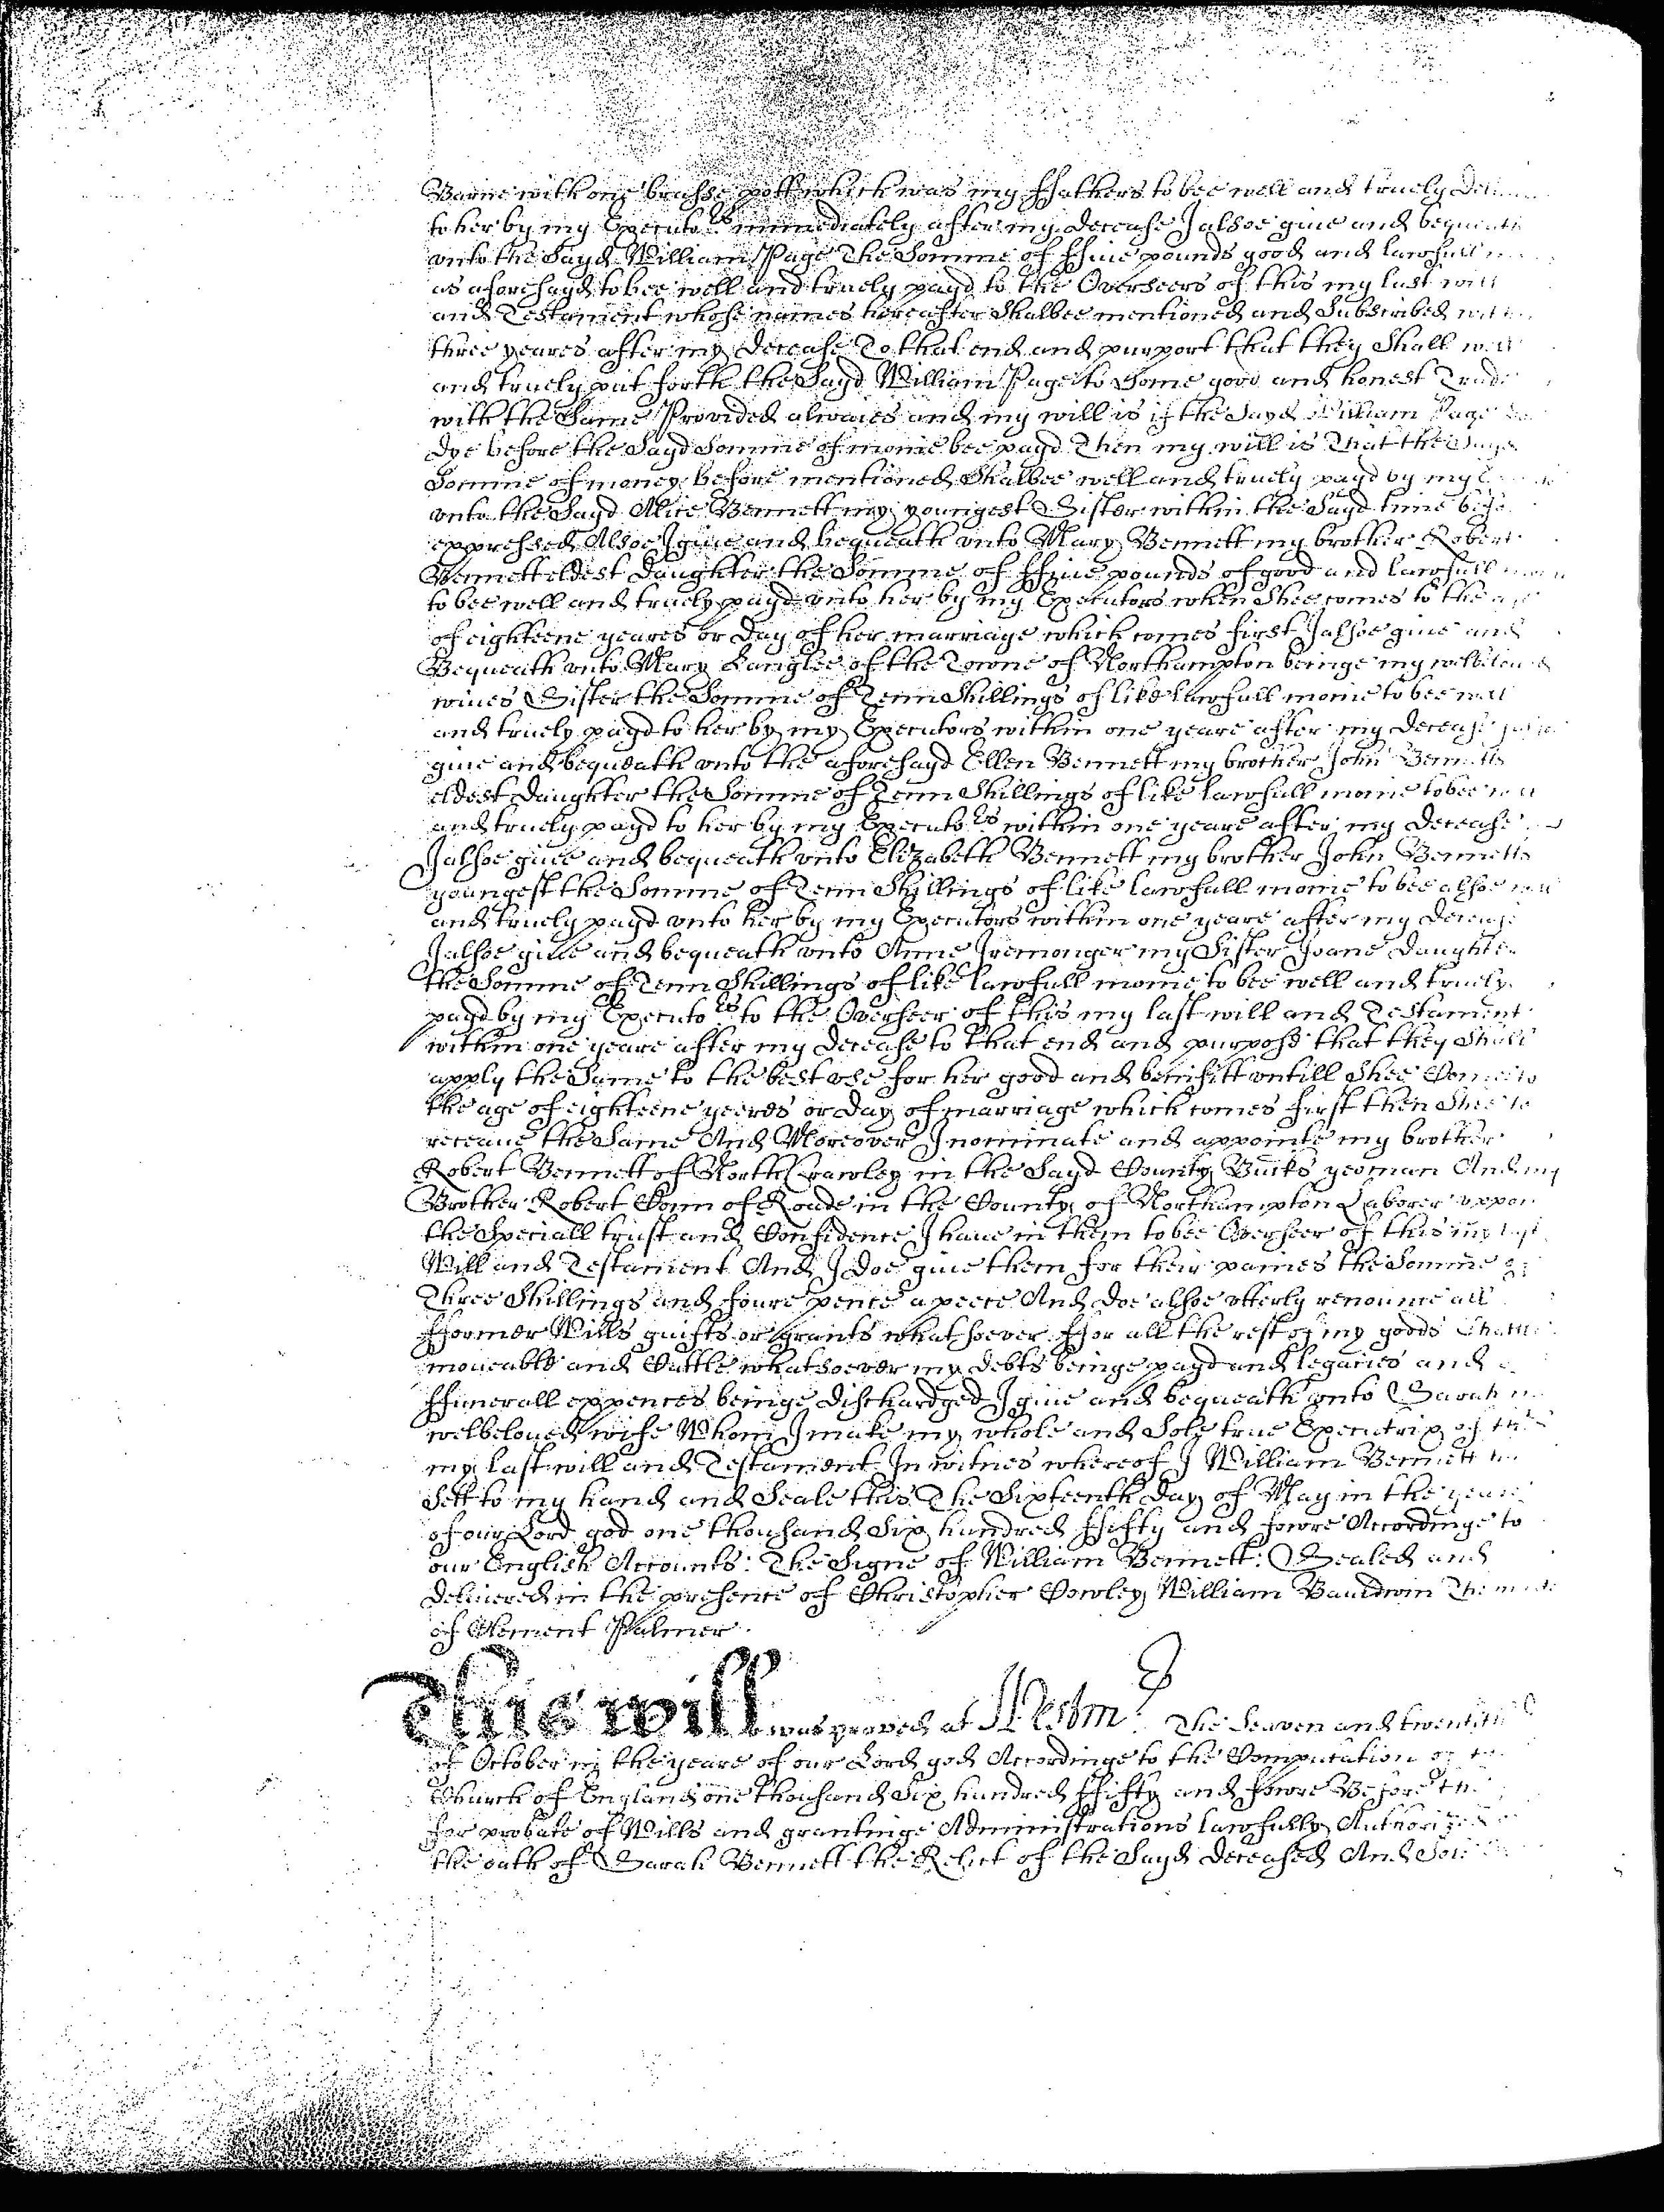 Barne with one brasse pott which was my ffathers to bee well and truely
to her by my Executors immediately after my decease I alsoe giue and bequeath
vnto the Sayd William Page The Somme of ffiue pounds good and lawfull
as aforesayd to bee well and truely payd to the Overseers of this my last will
and Testament whose names hereafter Shalbee mentioned and Subscribed
three yeares after my decease To that end and purport that they Shall well
and truely put forth the Sayd William Page to Some good and honest Trade
with the Same Provided alwaies and my will is if the Sayd William Page
dye before the Sayd Somme of monie bee payd Then my will is That the Sayd
Somme of money before mentioned Shalbee well and truely payd by my
vnto the Sayd Alice Bennett my youngest Sister within the Sayd time before
expressed Alsoe I giue and bequeath vnto Mary Bennett my brother Robert
Bennett eldest daughter the Somme of ffyue pounds of good and lawfull
to bee well and truely payd vnto her by my Executors when Shee comes to the age
of eighteene yeares or day of her marriage which comes first I alsoe giue and
Bequeath vnto Mary Langlee of the Towne of Northampton beinge my welbeloued
wiues Sister the Somme of Tenn Shillings of like lawfull monie to bee well
and truely payd to her by my Executors within one yeare after my decease
giue and bequeath vnto the aforesayd Ellen Bennett my brother John Bennetts
eldest daughter the Somme of Tenn Shillings of like lawfull monie to bee well
and truely payd to her by my Executors within one yeare after my decease
I alsoe giue and bequeath vnto Elizabeth Bennett my brother John Bennetts
youngest the Somme of Tenn Shillings of like lawfull monie to bee alsoe well
and truely payd vnto her by my Executors within one yeare after my decease
I alsoe giue and bequeath vnto Anne Iremonger my Sister Joane daughter
the Somme of Tenn Shillings of like lawfull monie to bee well and truely
payd by my Executors to the Overseer of this my last will and Testament
within one yeare after my decease to that end and purpose that they Shall
apply the Same to the best vse for her good and benifitt vntill Shee Come to
the age of eighteene yeeres or day of marriage which comes first then Shee to
receaue the Same And Moreover I nominate and appointe my brother
Robert Bennett of North Crawley in the Sayd County Bucks yeoman And my
Brother Robert Conn of Roade in the County of Northampton Laborer vppon
the Speciall trust and Confidence I haue in them to bee Overseer of this my last
Will and Testament And I doe giue them for their paines the Somme of
Three Shillings and foure pence a peece And doe alsoe vtterly renounce all
fformer Wills guifts or grants whatsoever ffor all the rest of my goods
moueable and Cattle whatsoever my debts beinge payd and legacies and
ffunerall expences beinge discharged I giue and bequeath vnto Sarah my
welbeloued wife Whom I make my whole and Sole true Executrix of this
my last will and Testament In witnes whereof I William Bennett
Sett to my hand and Seale this The Sixteenth day of May in the yeare
of our Lord god one thousand Six hundred ffifty and fowre Accordinge to
our English Accounts: The Signe of William Bennett: Sealed and
deliuered in the presence of Christopher Cowley William Bauldwin The marke
of Clement Palmer.
This will was proved at Westmr The Seaven and twentith
of October in the yeare of our Lord god Accordinge to the Computation of the
Church of England one thousand Six hundred ffifty and fowre Before the
for probate of Wills and grantinge Administrations lawfully Authorized
the oath of Sarah Bennett the Relict of the Sayd deceased And Sole